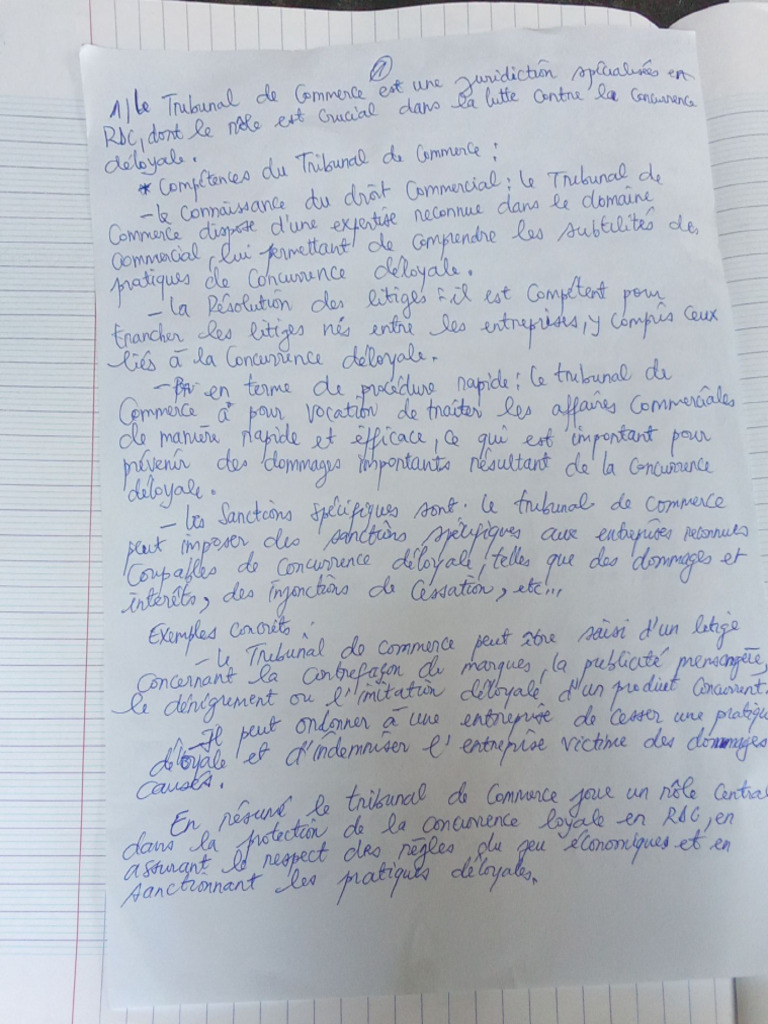 ①
1/ Le Tribunal de Commerce est une juridiction spécialisées en
RDC, dont le rôle est crucial dans la lutte contre la concurrence
déloyale.
* Compétences du Tribunal de Commerce :
- la Connaissance du droit Commercial : le Tribunal de
Commerce dispose d'une expertise reconnue dans le domaine
Commercial, lui permettant de comprendre les subtilités des
pratiques de Concurrence déloyale.
- la Résolution des litiges : il est Compétent pour
trancher les litiges nés entre les entreprises, y compris ceux
liés à la Concurrence déloyale.
- en terme de procédure rapide : le tribunal de
Commerce à pour vocation de traiter les affaires Commerciales
de manière rapide et efficace, ce qui est important pour
prévenir des dommages importants résultant de la concurrence
déloyale.
- les Sanctions spécifiques sont : le tribunal de commerce
peut imposer des sanctions spécifiques aux entreprises reconnues
Coupables de concurrence déloyale, telles que des dommages et
intérêts, des injonctions de Cessation, etc...
Exemples concrets :
- le Tribunal de commerce peut être saisi d'un litige
concernant la contrefaçon de marques, la publicité mensongère,
le dénigrement ou l'imitation déloyale d'un produit concurrent.
- Il peut ordonner à une entreprise de cesser une pratique
déloyale et d'indemniser l'entreprise victime des dommages
causés.
En résumé le tribunal de Commerce joue un rôle Central
dans la protection de la concurrence loyale en RDC, en
assurant le respect des règles du jeu économiques et en
sanctionnant les pratiques déloyales.